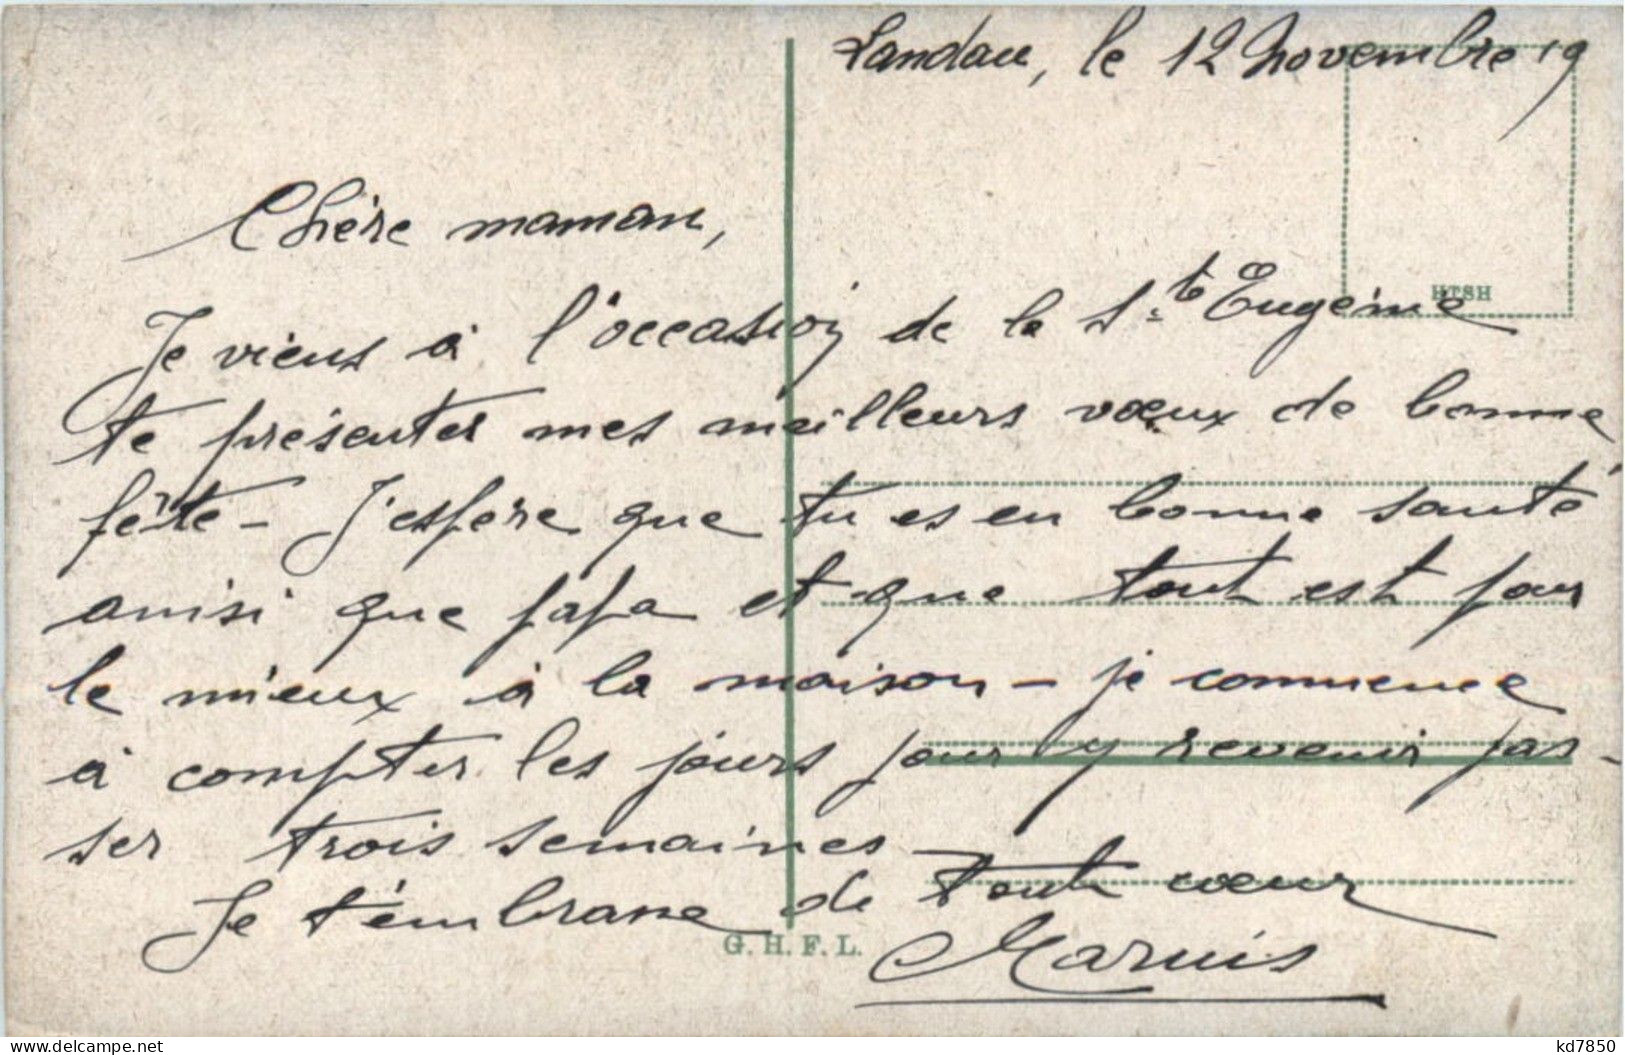 Landau, le 12 Novembre 19
Chère maman,
HTSH
Je viens à l'occasion de la S.te Eugénie
te présenter mes meilleurs vœux de bonne
fête - J'espère que tu es en bonne santé
ainsi que papa et que tout est pour
le mieux à la maison - je commence
à compter les jours pour y revenir pas-
ser trois semaines -
Je t'embrasse de tout cœur
G. H. F. L.
Marius
www.delcampe.net
kd7850